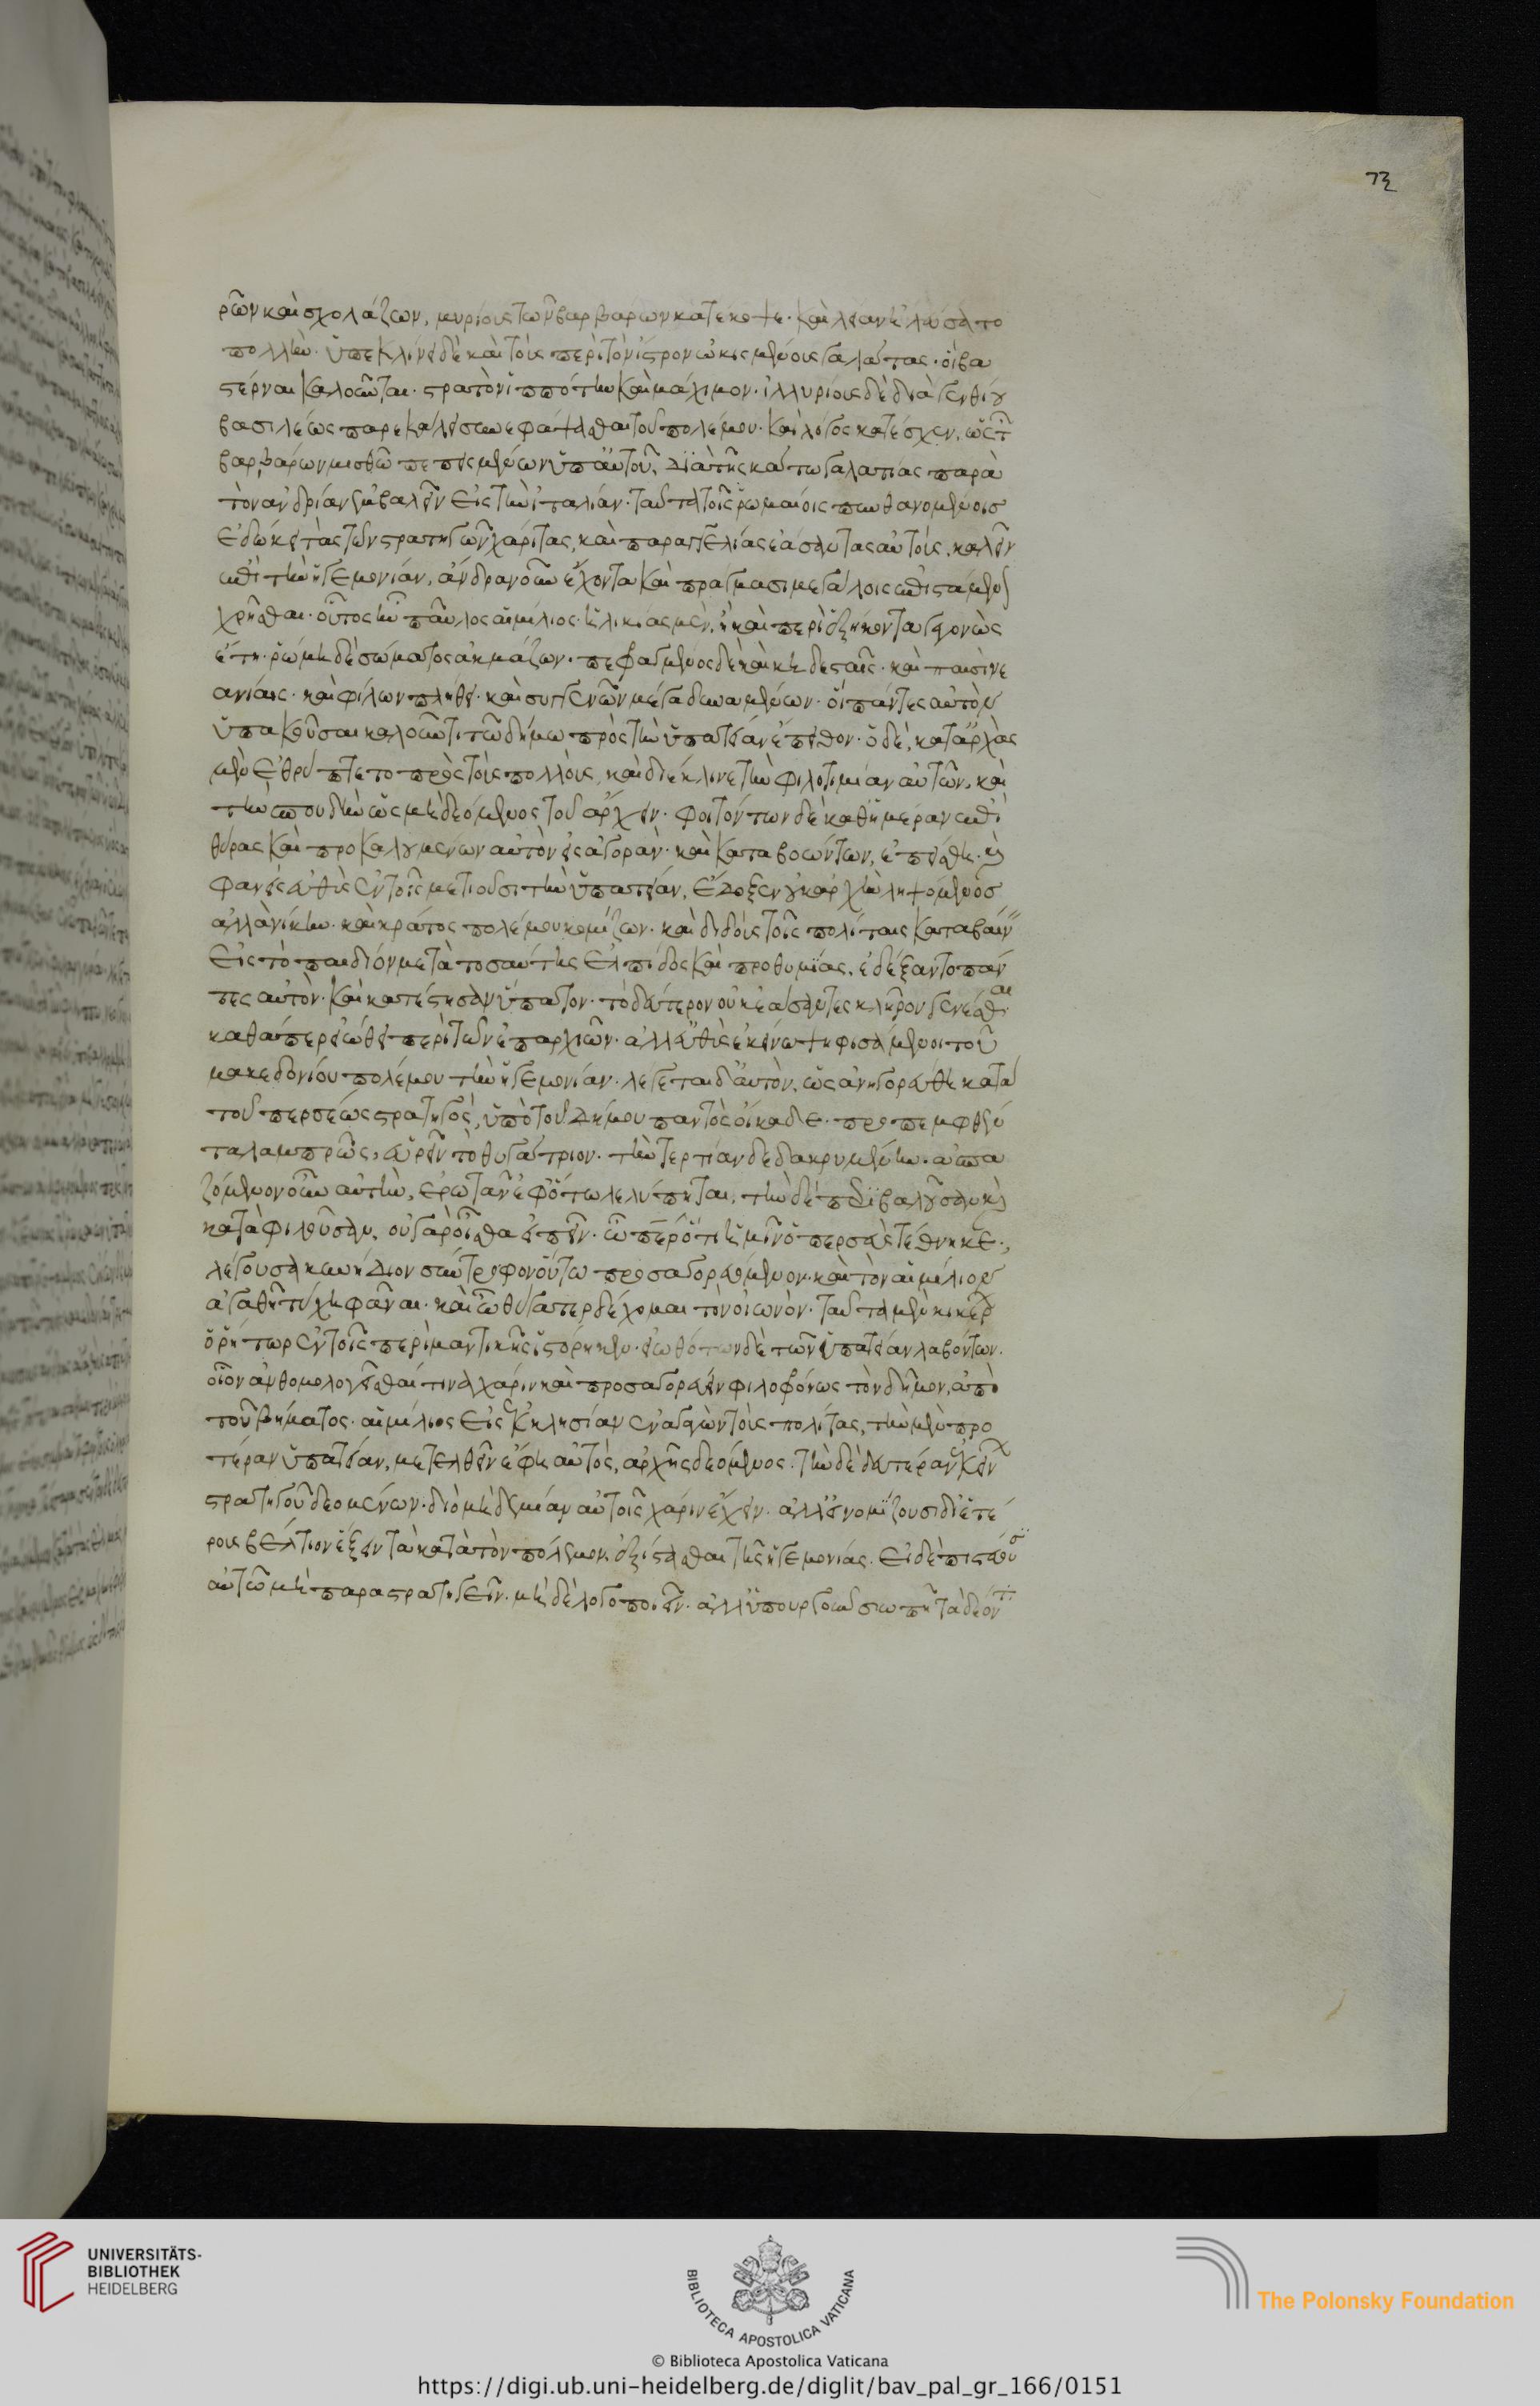 73
ρῶν καὶ σχολάζων, μυρίους τῶν βαρβάρων κατέκοψε· καὶ λείαν ἠλάσατο
πολλήν· ὑπεκίνει δὲ καὶ τοὺς περὶ τὸν ἴστρον ὠκισμένους γαλάτας· οἳ βα
στέρναι καλοῦνται· στρατὸν ἱππότην καὶ μάχιμον· ἰλλυριοὺς δὲ διὰ γενθίου
βασιλέως παρεκάλει συνεφάψασθαι τοῦ πολέμου· καὶ λόγος κατέσχεν, ὡς τῶν
βαρβάρων μισθῷ πεπεισμένων ὑπ' αὐτοῦ, διὰ τῆς κάτω γαλατίας παρὰ
τὸν ἀνδρίαν ἐμβαλεῖν εἰς τὴν ἰταλίαν· ταῦτα τοῖς ῥωμαίοις πυνθανομένοις
ἔδόκει τὰς τῶν στρατηγῶν χάριτας, καὶ παραγγελίας ἐάσαντας αὐτοὺς, καλεῖν
ἐπὶ τὴν ἡγεμονίαν, ἄνδρα νοῦν ἔχοντα καὶ πράγμασι μεγάλοις ἐπιστάμενον
χρῆσθαι· οὗτος ἦν παῦλος αἰμίλιος· ἡλικίας μὲν, ἤδη καὶ περὶ ἑξήκοντα γεγονὼς
ἔτη· ῥώμῃ δὲ σώματος ἀκμάζων· πεφραγμένος δὲ καὶ κηδεσταῖς· καὶ παισὶ νε
ανίαις· καὶ φίλων πλήθει· καὶ συγγενῶν μέγα δυναμένων· οἳ πάντες αὐτὸν
ὑπακοῦσαι καλοῦντι τῷ δήμῳ πρὸς τὴν ὑπατείαν ἔπειθον· ὁ δὲ, κατ' ἀρχὰς
μὲν ἐθρύπτετο πρὸς τοὺς πολλοὺς, καὶ διέκλινε τὴν φιλοτιμίαν αὐτῶν, καὶ
τὴν σπουδὴν ὡς μὴ δεόμενος τοῦ ἄρχειν· φοιτώντων δὲ καθ' ἡμέραν ἐπὶ
θύρας καὶ προκαλουμένων αὐτὸν εἰς ἀγορὰν· καὶ καταβοώντων, ἐπείσθη· καὶ
φανεὶς εὐθὺς ἐν τοῖς μετιοῦσι τὴν ὑπατείαν, ἔδοξεν οὐκ ἀρχὴν ληψόμενος
ἀλλὰ νίκην· καὶ κράτος πολέμου κομίζων· καὶ διδοὺς τοῖς πολίταις καταβαίνειν
εἰς τὸ πεδίον μετὰ τοσαύτης ἐλπίδος καὶ προθυμίας, ἐδέξαντο πάν
τες αὐτὸν· καὶ κατέστησαν ὕπατον· τὸ δεύτερον οὐκ ἐάσαντες κλῆρον γενέσθαι
καθάπερ εἰώθει περὶ τῶν ἐπαρχιῶν· ἀλλ' εὐθὺς ἐκείνῳ ψηφισάμενοι τοῦ
μακεδονίου πολέμου τὴν ἡγεμονίαν· λέγεται δ' αὐτὸν, ὡς ἀνηγορεύθη κατὰ
τοῦ περσέως στρατηγὸς, ὑπὸ τοῦ δήμου παντὸς οἴκαδε· προπεμφθέν
τα λαμπρῶς, εὑρεῖν τὸ θυγάτριον· τὴν τερτίαν δεδακρυμένην· ἀσπα
ζόμενον οὖν αὐτὴν, ἐρωτᾶν ἐφ' ὅτῳ λελύπηται, τὴν δὲ περιβαλοῦσαν καὶ
καταφιλοῦσαν, οὐ γὰρ οἶσθα εἰπεῖν· ὦ πάτερ ὅτι ἡμῖν ὁ περσεὺς τέθνηκε·
λέγουσα κυνίδιον σύντροφον οὕτω προσαγορευόμενον· καὶ τὸν αἰμίλιον
ἀγαθῇ τύχῃ φᾶναι· καὶ ὦ θύγατερ δέχομαι τὸν οἰωνὸν· ταῦτα μὲν κικέρων
ὁ ῥήτωρ ἐν τοῖς περὶ μαντικῆς ἱστόρηκεν· εἰωθότων δὲ τῶν ὑπατείαν λαβόντων·
οἷον ἀνθομολογεῖσθαί τινα χάριν καὶ προσαγορεύειν φιλοφρόνως τὸν δῆμον, ἀπὸ
τοῦ βήματος· αἰμίλιος εἰς ἐκκλησίαν συναγαγὼν τοὺς πολίτας, τὴν μὲν προ
τέραν ὑπατείαν, μετελθεῖν ἔφη αὐτὸς, ἀρχῆς δεόμενος· τὴν δὲ δευτέραν ἐκείνων
στρατηγοῦ δεομένων· διὸ μηδεμίαν αὐτοῖς χάριν ἔχειν· ἀλλ' εἰ νομίζουσι δι' ἑτέ
ρους βέλτιον ἕξειν τὰ κατὰ τὸν πόλεμον, ἐξίστασθαι τῆς ἡγεμονίας· εἰ δὲ πιστεύουσιν
αὐτῷ μὴ παραστρατηγεῖν· μηδὲ λογοποιεῖν· ἀλλ' ὑπουργεῖν σιωπῇ τὰ δέοντα
UNIVERSITÄTS-
BIBLIOTHEK
HEIDELBERG
BIBLIOTECA APOSTOLICA VATICANA
The Polonsky Foundation
© Biblioteca Apostolica Vaticana
https://digi.ub.uni-heidelberg.de/diglit/bav_pal_gr_166/0151